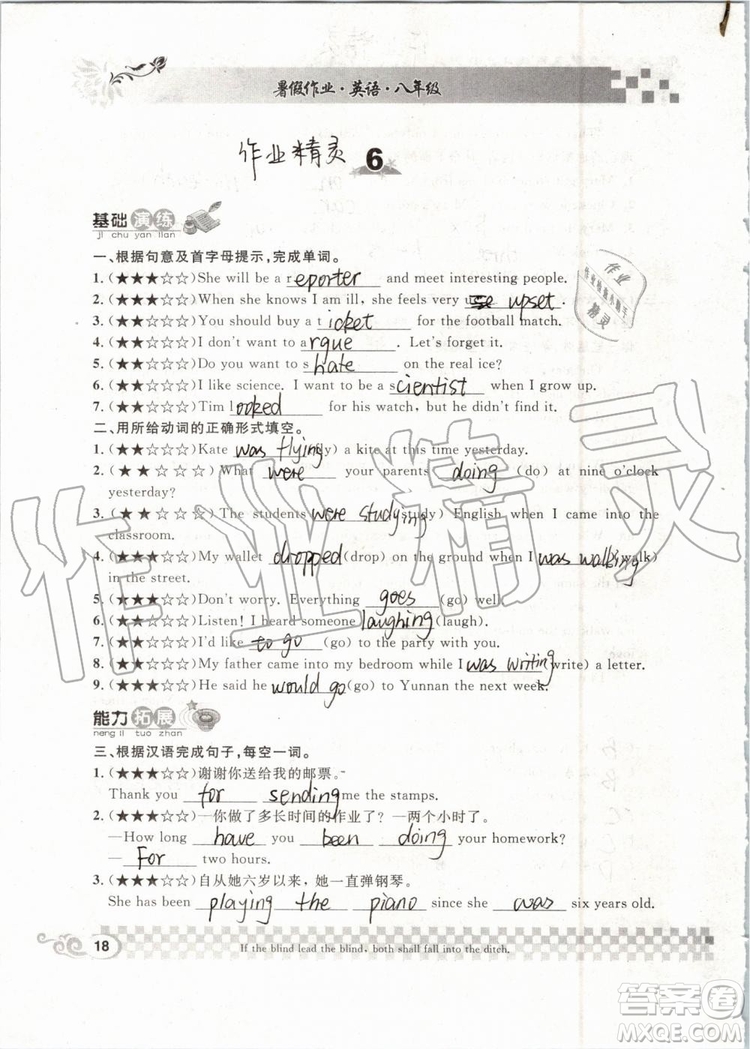 暑假作业·英语·八年级
作业精灵 6
基础演练
ji chu yan lian
一、根据句意及首字母提示,完成单词。
1. (★★★☆☆)She will be a reporter and meet interesting people.
2. (★★★☆☆)When she knows I am ill, she feels very upset.
3. (★★★☆☆)You should buy a ticket for the football match.
4. (★★★☆☆)I don't want to argue. Let's forget it.
5. (★★★☆☆)Do you want to shate on the real ice?
6. (★★★☆☆)I like science. I want to be a scientist when I grow up.
7. (★★★☆☆)Tim looked for his watch, but he didn't find it.
二、用所给动词的正确形式填空。
1. (★★☆☆☆)Kate was flying a kite at this time yesterday.
2. (★★☆☆☆)What were your parents doing (do) at nine o'clock
yesterday?
3. (★★☆☆☆)The students were studying English when I came into the
classroom.
4. (★★☆☆☆)My wallet dropped(drop) on the ground when I was walking
in the street.
5. (★★★☆☆)Don't worry. Everything goes (go) well.
6. (★★★☆☆)Listen! I heard someone laughing(laugh).
7. (★★★☆☆)I'd like to go (go) to the party with you.
8. (★★★☆☆)My father came into my bedroom while I was writing(write) a letter.
9. (★★★☆☆)He said he would go(go) to Yunnan the next week.
能力拓展
neng li tuo zhan
三、根据汉语完成句子,每空一词。
1. (★★★☆☆)谢谢你送给我的邮票。
Thank you for sending me the stamps.
2. (★★★☆☆)—你做了多长时间的作业了? —两个小时了。
—How long have you been doing your homework?
—For two hours.
3. (★★★☆☆)自从她六岁以来,她一直弹钢琴。
She has been playing the piano since she was six years old.
18 If the blind lead the blind, both shall fall into the ditch.
作业精灵
作业
精灵
答案圈
MXQE.COM